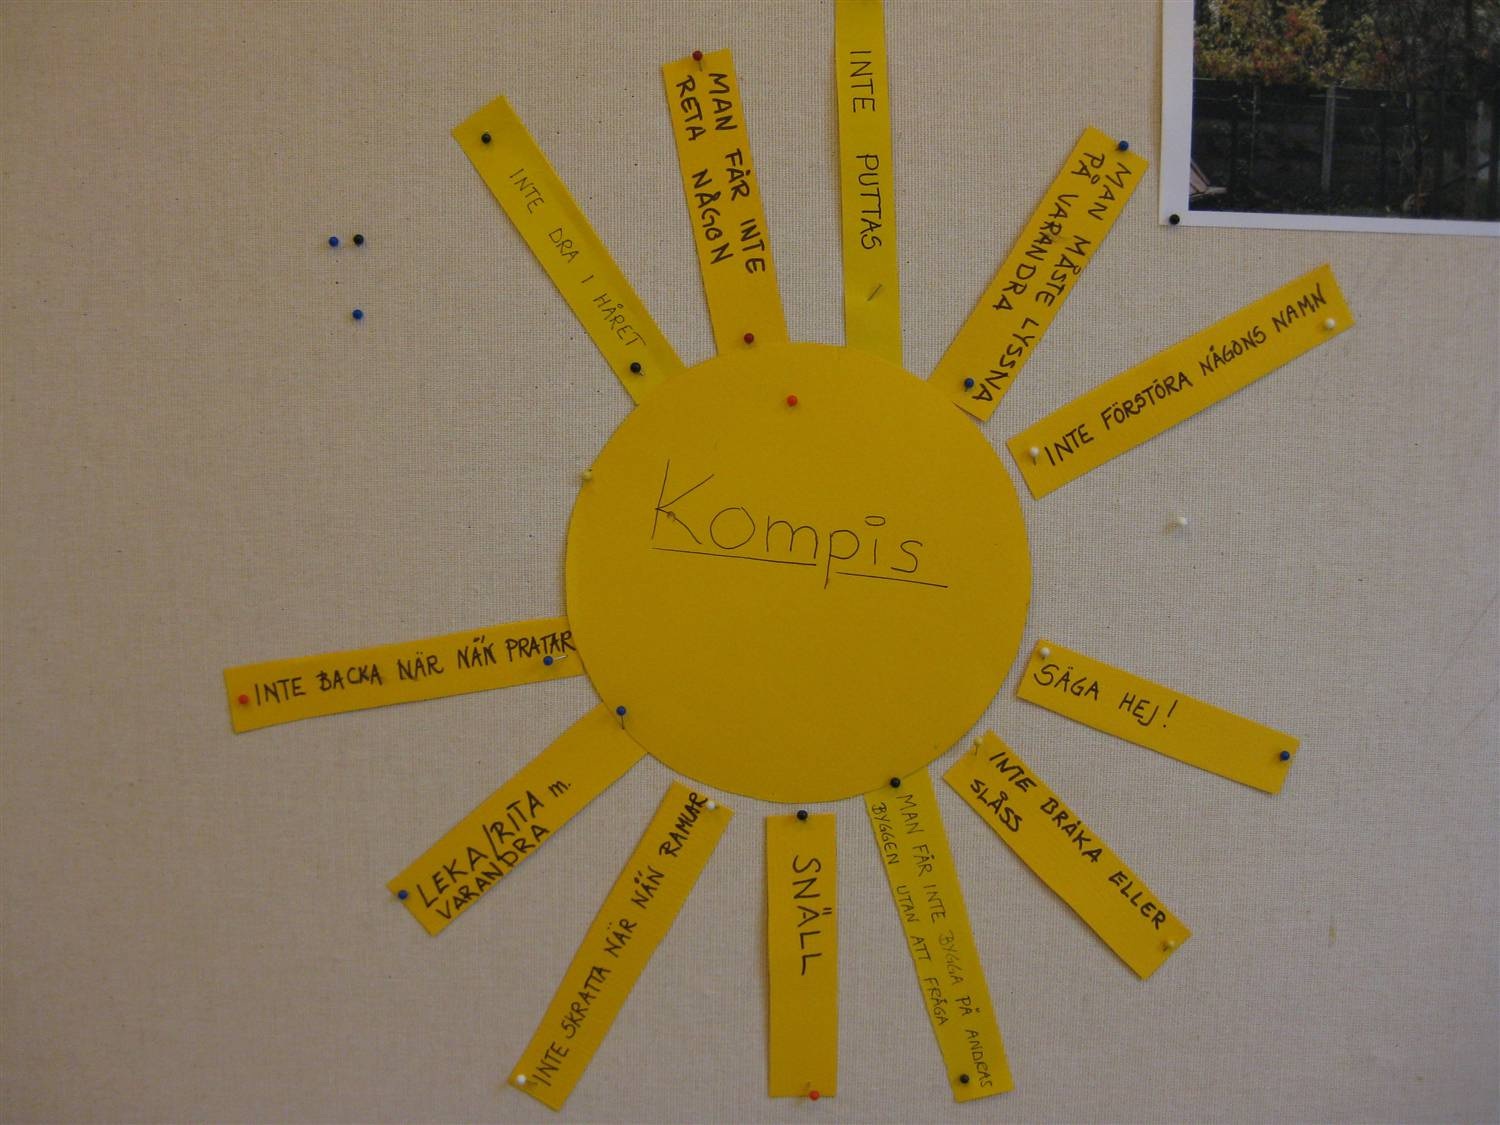 Kompis
INTE PUTTAS
MAN MÅSTE LYSSNA
PÅ VARANDRA
INTE FÖRSTÖRA NÅGONS NAMN
SÄGA HEJ!
INTE BRÅKA ELLER
SLÅSS
MAN FÅR INTE BYGGA PÅ ANDRAS
BYGGEN UTAN ATT FRÅGA
SNÄLL
INTE SKRATTA NÄR NÅN RAMLAR
LEKA/RITA m.
VARANDRA
INTE BACKA NÄR NÅN PRATAR
INTE DRA I HÅRET
MAN FÅR INTE
RETA NÅGON